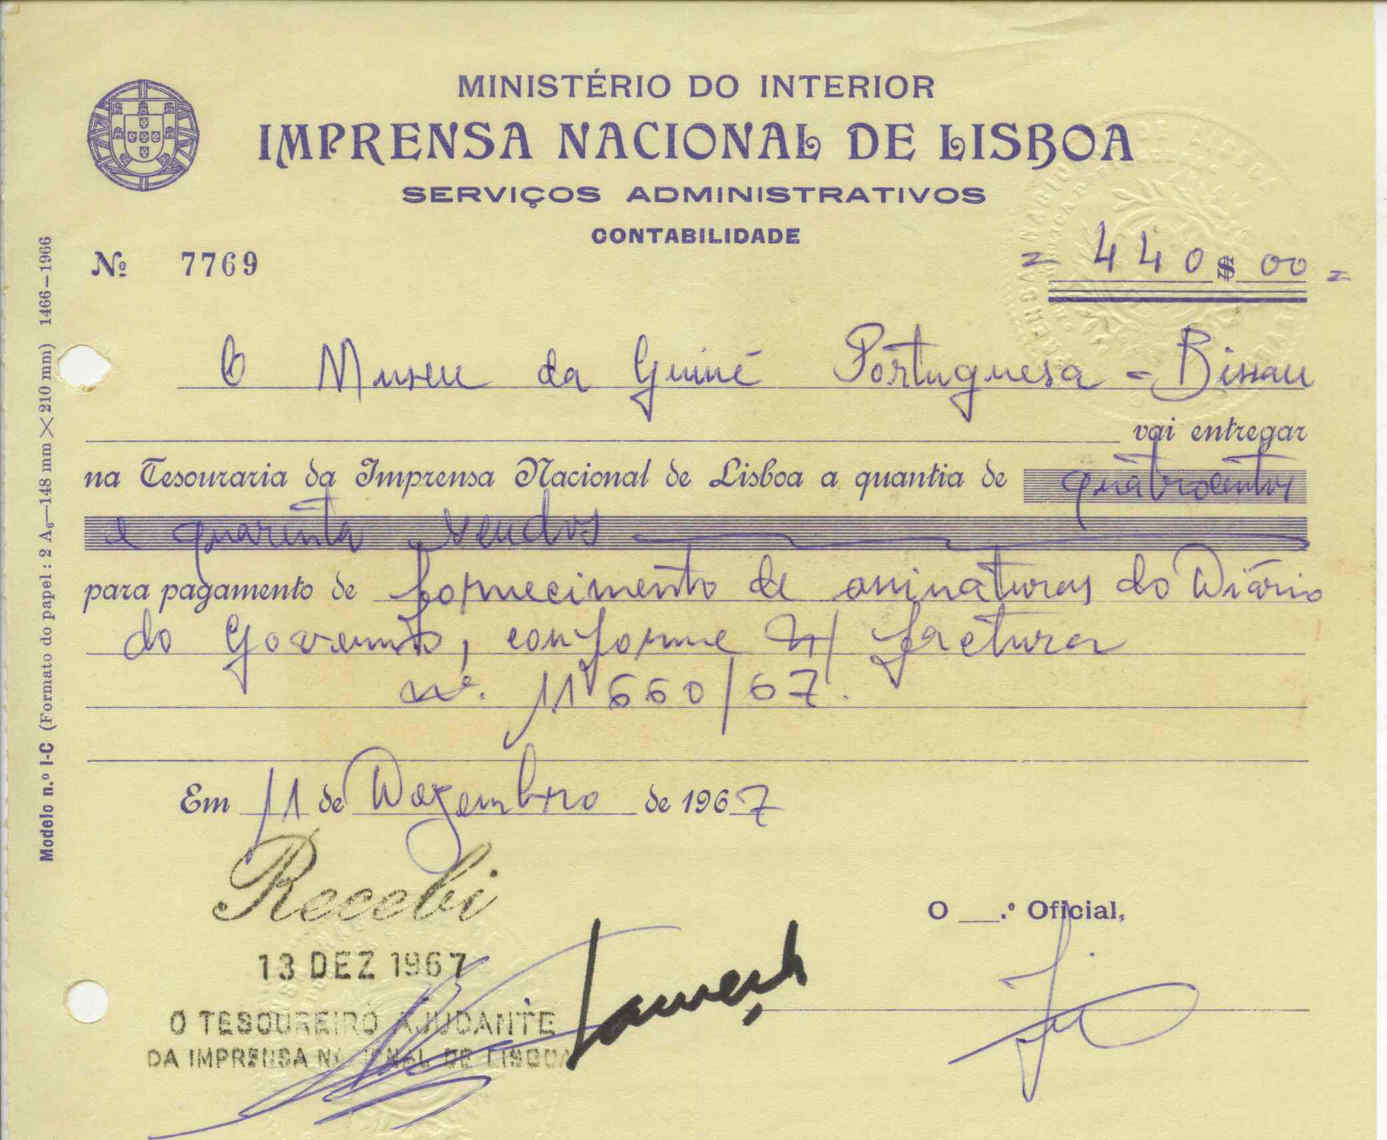 MINISTÉRIO DO INTERIOR
IMPRENSA NACIONAL DE LISBOA
SERVIÇOS ADMINISTRATIVOS
CONTABILIDADE
Nº 7769
= 440$00 =
O Museu da Guiné Portuguesa - Bissau
vai entregar
na Tesouraria da Imprensa Nacional de Lisboa a quantia de quatrocentos
e quarenta escudos
para pagamento de fornecimento de assinaturas do Diário
do Governo, conforme n/ factura
nº. 11660/67.
Em 11 de Dezembro de 1967
Recebi
13 DEZ 1967
O TESOUREIRO AJUDANTE
DA IMPRENSA NACIONAL DE LISBOA
O ___.º Oficial,
Modelo n.º I-C (Formato do papel: 2 A₆—148 mm × 210 mm) 1466-1966